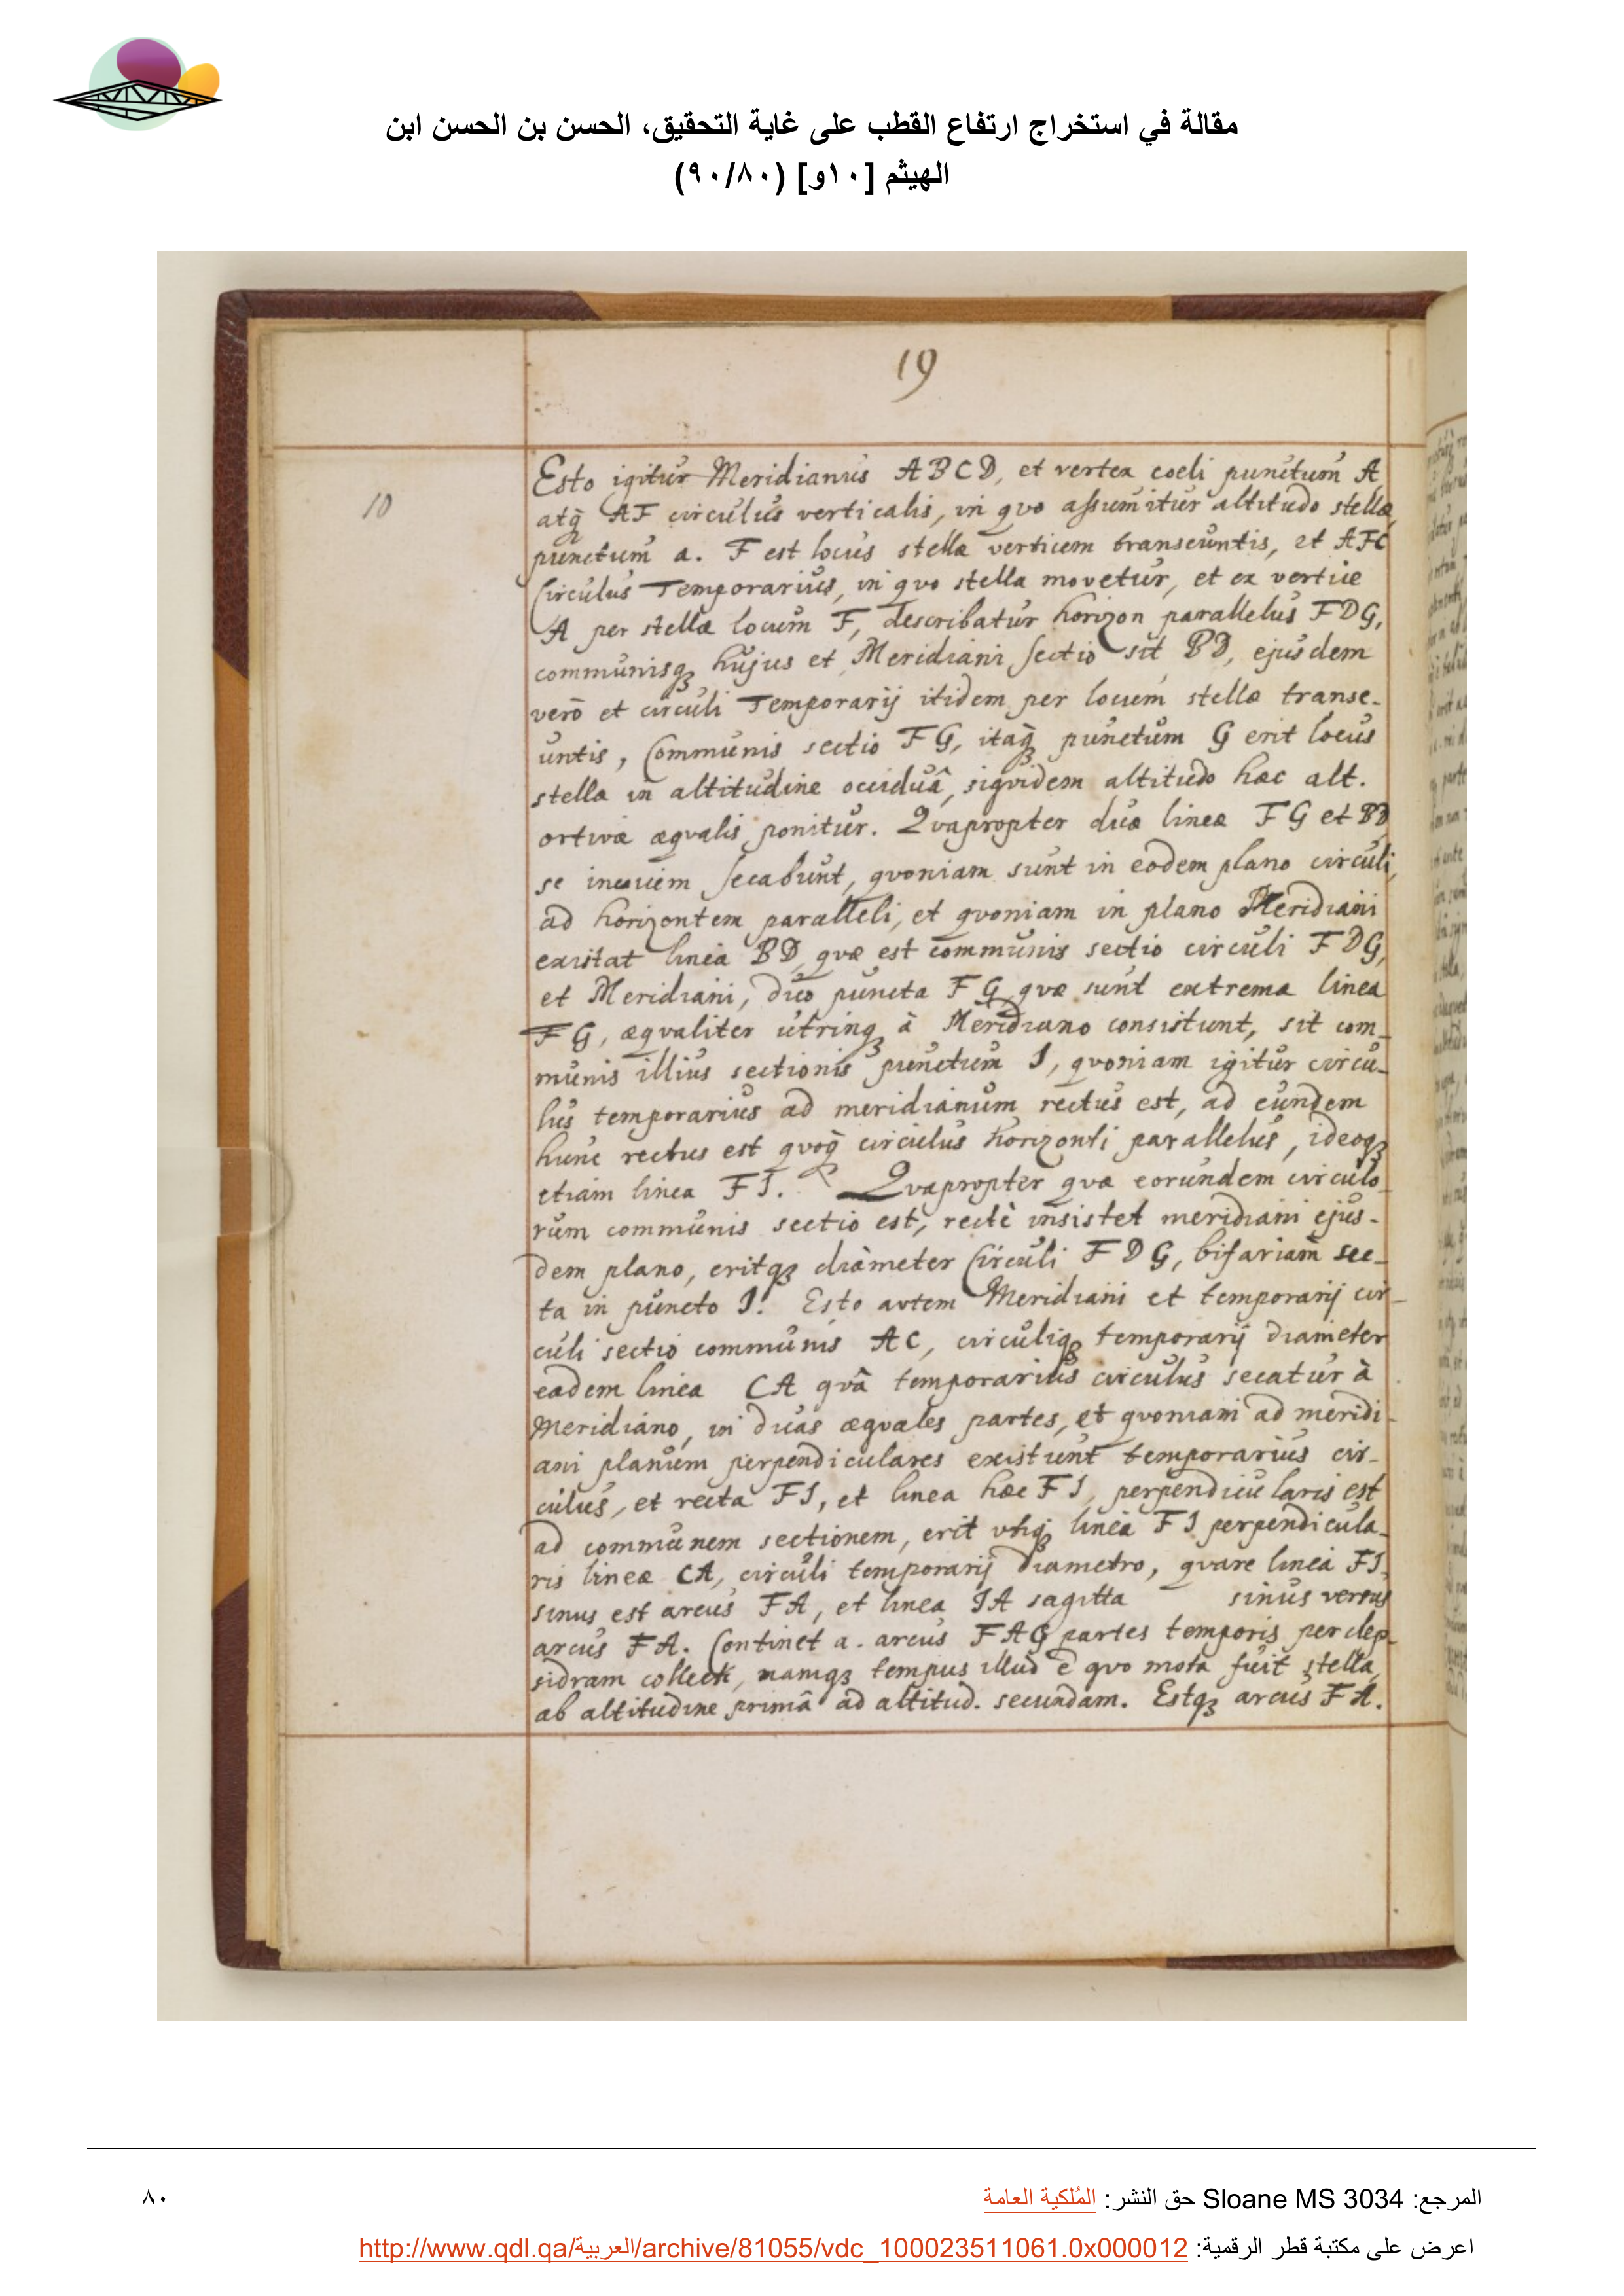 مقالة في استخراج ارتفاع القطب على غاية التحقيق، الحسن بن الحسن ابن
الهيثم [١٠و] (٩٠/٨٠)
19
10
Esto igitur Meridianus ABCD, et vertex coeli punctum A
atq̃ AF circulus verticalis, in quo assumitur altitudo stellæ,
punctum a. F est locus stellæ verticem transeuntis, et AFC
Circulus Temporarius, in quo stella movetur, et ex vertice
A per stellæ locum F, describatur horizon parallelus FDG,
communisqꝫ hujus et Meridiani sectio sit BD, ejusdem
verò et circuli Temporarij itidem per locum stellæ transe-
untis, Communis sectio FG, itaq̃ punctum G erit locus
stellæ in altitudine occiduâ, siqvidem altitudo hæc alt.
ortivæ æqvalis ponitur. Qvapropter duæ lineæ FG et BD
se secabunt, qvoniam sunt in eodem plano circuli,
ad horizontem paralleli, et qvoniam in plano Meridiani
existat linea BD, qvæ est communis sectio circuli FDG,
et Meridiani, duo puncta FG qvæ sunt extrema linea
FG, æqvaliter utrinqꝫ à Meridiano consistunt, sit com-
munis illius sectionis punctum I, qvoniam igitur circu-
lus temporarius ad meridianum rectus est, ad eundem
hunc rectus est qvoq̃ circulus horizonti parallelus, ideoqꝫ
etiam linea FI. Qvapropter qvæ eorundem circulo-
rum communis sectio est, rectè insistet meridiani ejus-
dem plano, eritqꝫ diàmeter Circuli FDG, bifariam sec-
ta in puncto I. Esto autem Meridiani et temporarij cir-
culi sectio communis AC, circuliqꝫ temporarij diameter
eadem linea CA qvâ temporarius circulus secatur à
Meridiano, in duas æqvales partes, et qvoniam ad meridi-
ani planum perpendiculares existunt temporarius cir-
culus, et recta FI, et linea hæc FI, perpendicularis est
ad communem sectionem, erit utiqꝫ linea FI perpendicula-
ris lineæ CA, circuli temporarij diametro, qvare linea FI,
sinus est arcus FA, et linea IA sagitta sinus versus
arcus FA. Continet a. arcus FAG partes temporis per clep-
sidram collect, namqꝫ tempus illud è qvo mota fuit stella,
ab altitudine primâ ad altitud. secundam. Estqꝫ arcus FA.
المرجع: Sloane MS 3034 حق النشر: المُلكية العامة
٨٠
اعرض على مكتبة قطر الرقمية: http://www.qdl.qa/العربية/archive/81055/vdc_100023511061.0x000012